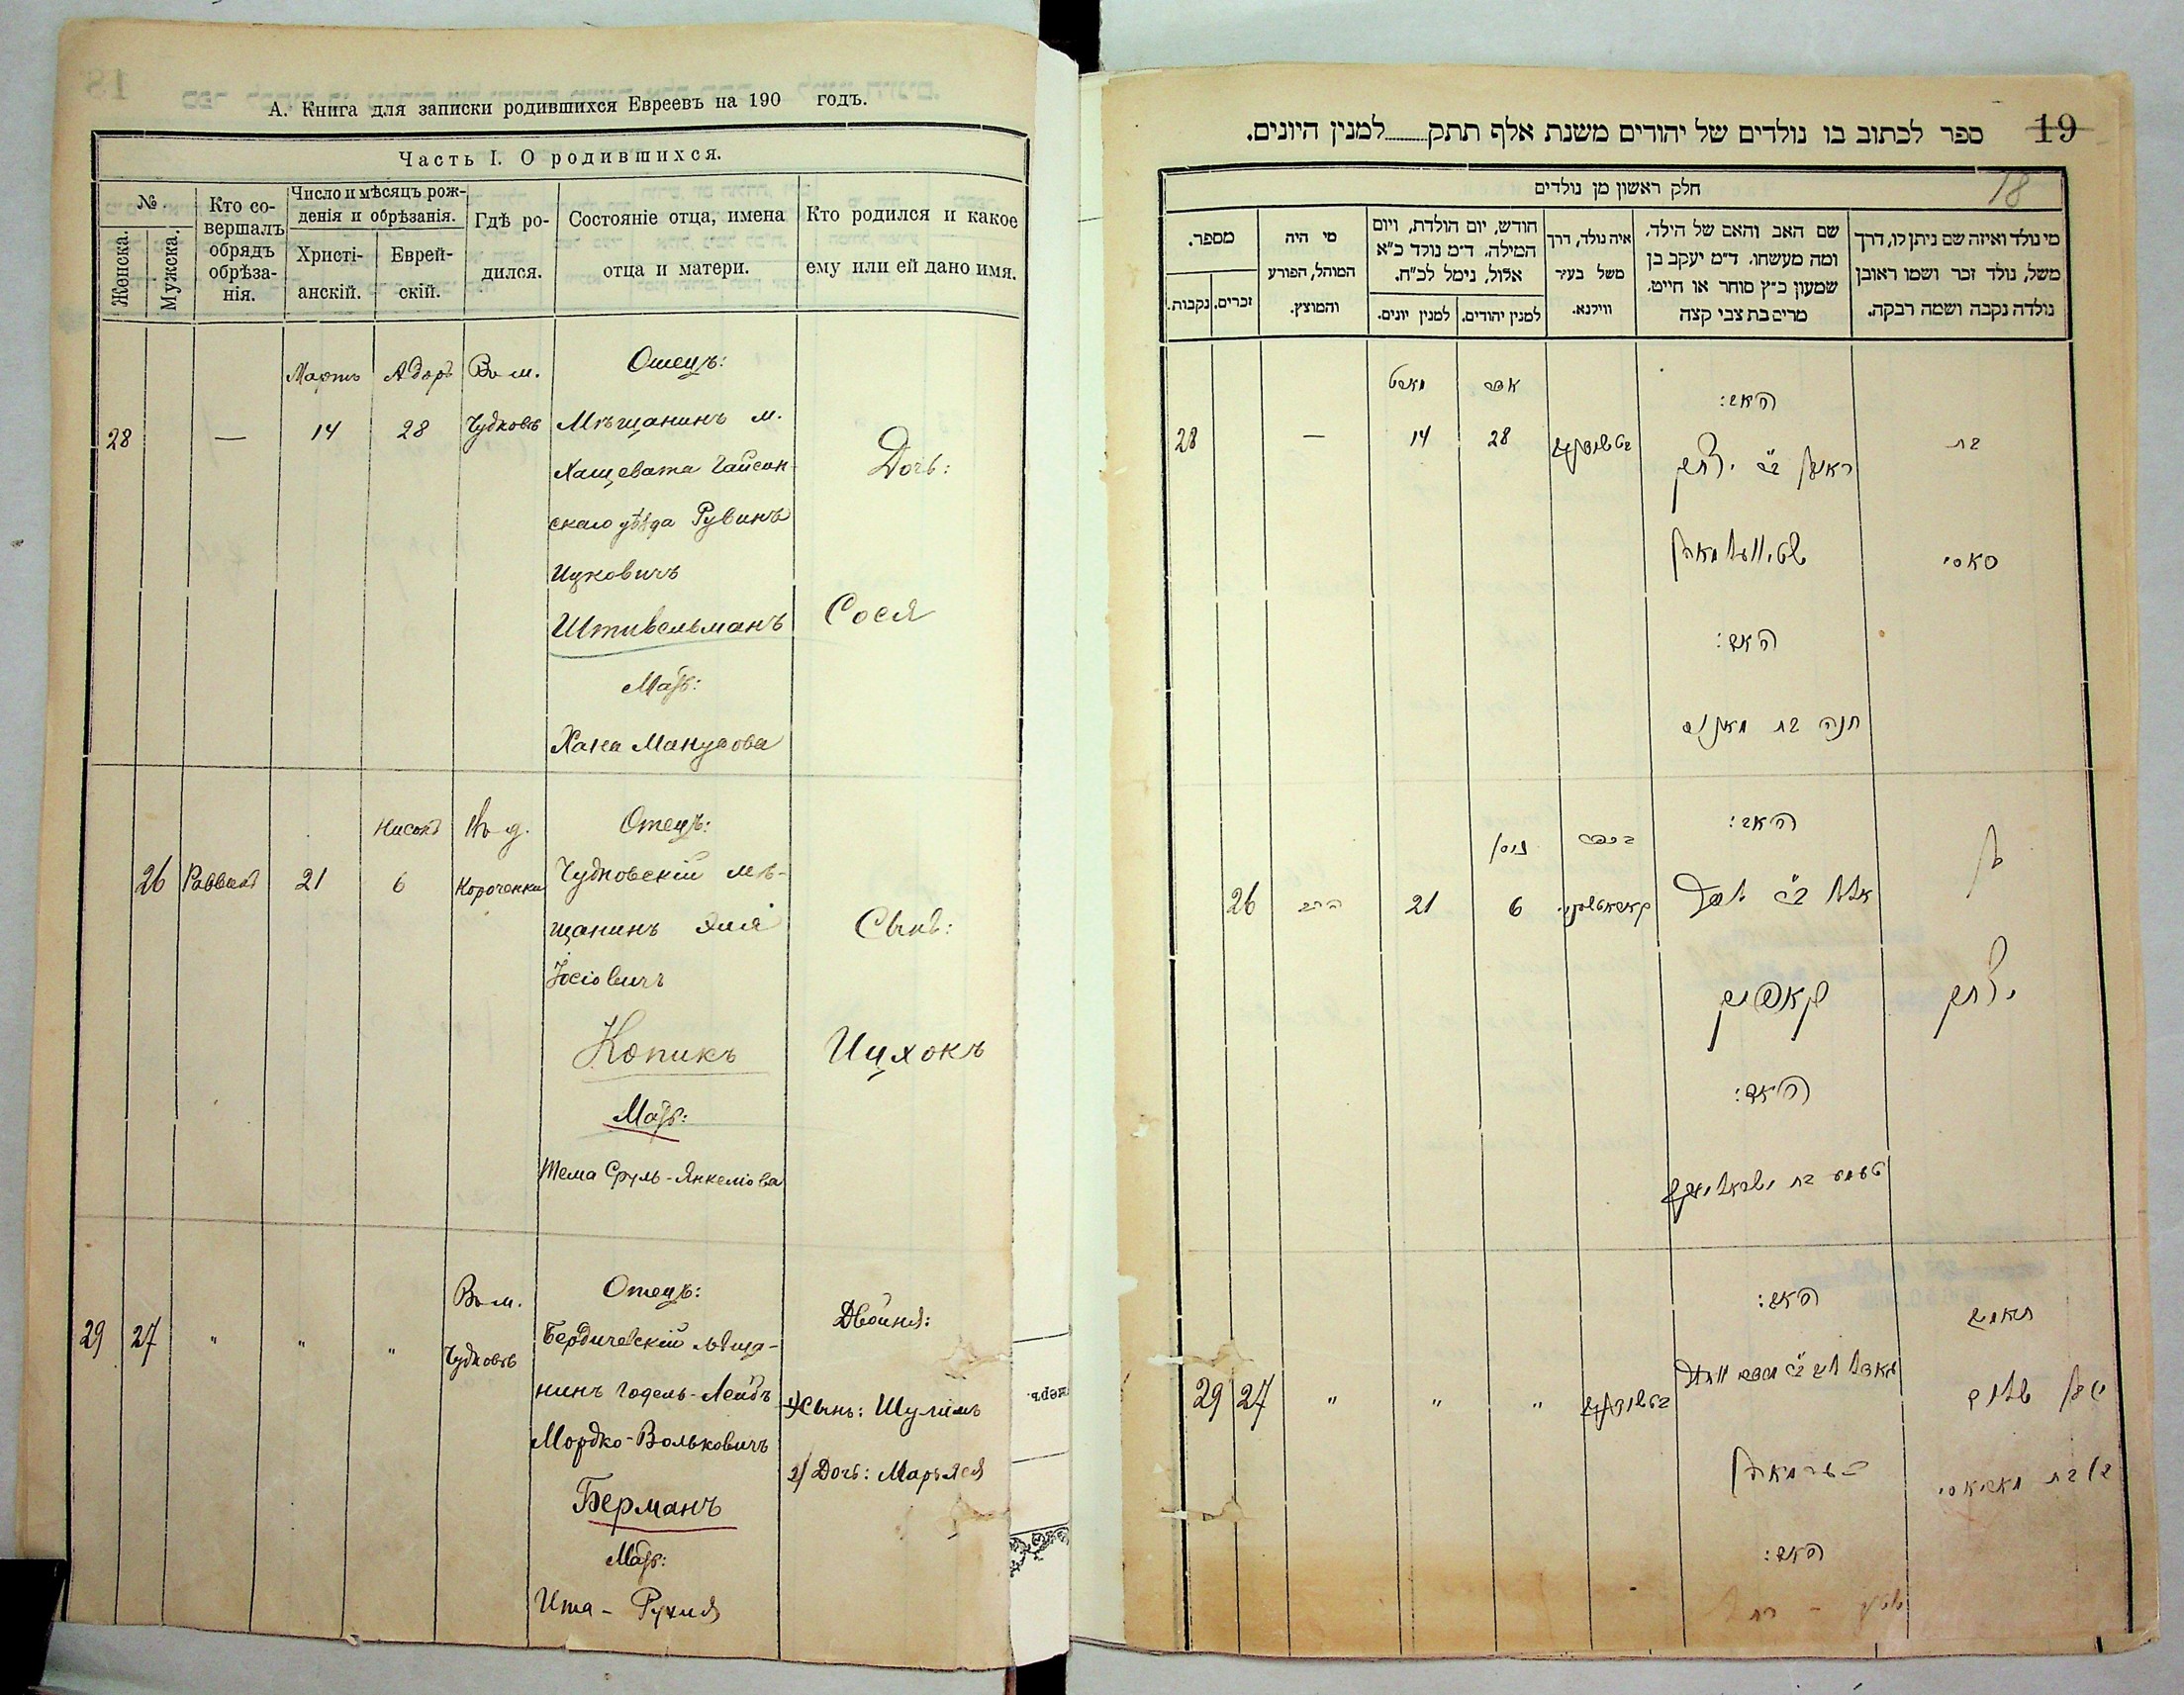 А. Книга для записки родившихся Евреевъ на 190 годъ.
Часть I. О родившихся.
№.
Женска.
Мужска.
Кто со-
вершалъ
обрядъ
обрѣза-
нія.
Число и мѣсяцъ рож-
денія и обрѣзанія.
Христі-
анскій.
Еврей-
скій.
Гдѣ ро-
дился.
Состояніе отца, имена
отца и матери.
Кто родился и какое
ему или ей дано имя.
28
—
Мартъ
14
Адоръ
28
Въ м.
Чудновѣ
Отецъ:
Мѣщанинъ м.
Хащевата Гайсин-
скаго уѣзда Рувинъ
Ицковичъ
Штивельманъ
Мать:
Хана Манусова
Дочь:
Сося
26
Раввинъ
21
Нисонъ
6
Въ д.
Короченки
Отецъ:
Чудновскій мѣ-
щанинъ Элія
Іосіовичъ
Копикъ
Мать:
Тема Сруль-Янкеліова
Сынъ:
Ицхокъ
29
27
"
"
"
Въ м.
Чудновѣ
Отецъ:
Бердичевскій мѣща-
нинъ Годель-Лейбъ
Мордко-Вольковичъ
Берманъ
Мать:
Ита - Рухля
Двойня:
1/ Сынъ: Шулимъ
2/ Дочь: Марьяся
19
18
ספר לכתוב בו נולדים של יהודים משנת אלף תתק........למנין היונים.
חלק ראשון מן נולדים
מי נולד ואיזה שם ניתן לו, דרך
משל, נולד זכר ושמו ראובן
נולדה נקבה ושמה רבקה.
שם האב והאם של הילד,
ומה מעשהו. ד״מ יעקב בן
שמעון כ״ץ סוחר או חייט,
מרים בת צבי קצה
איה נולד, דרך
משל בעיר
ווילנא.
חודש, יום הולדת, ויום
המילה. ד״מ נולד כ״א
אלול, נימל לכ״ח.
למנין יהודים.
למנין יונים.
מי היה
המוהל, הפורע
והמוצץ.
מספר.
זכרים.
נקבות.
28
—
מארט
14
אדר
28
האב:
ראובן ב״ר יצחק
שטיוועלמאן
האם:
חנה בת מאנוס
בת
סאסי
26
הרב
21
ניסן
6
האב:
קאפיק
האם:
בן
יצחק
29
27
"
"
"
האב:
בערמאן
האם:
תאומים
בן שלום